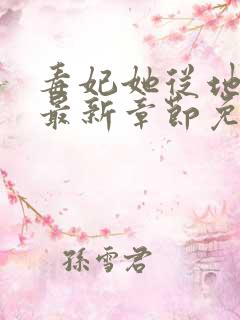 毒妃她从地
最新章節免
孫雪君